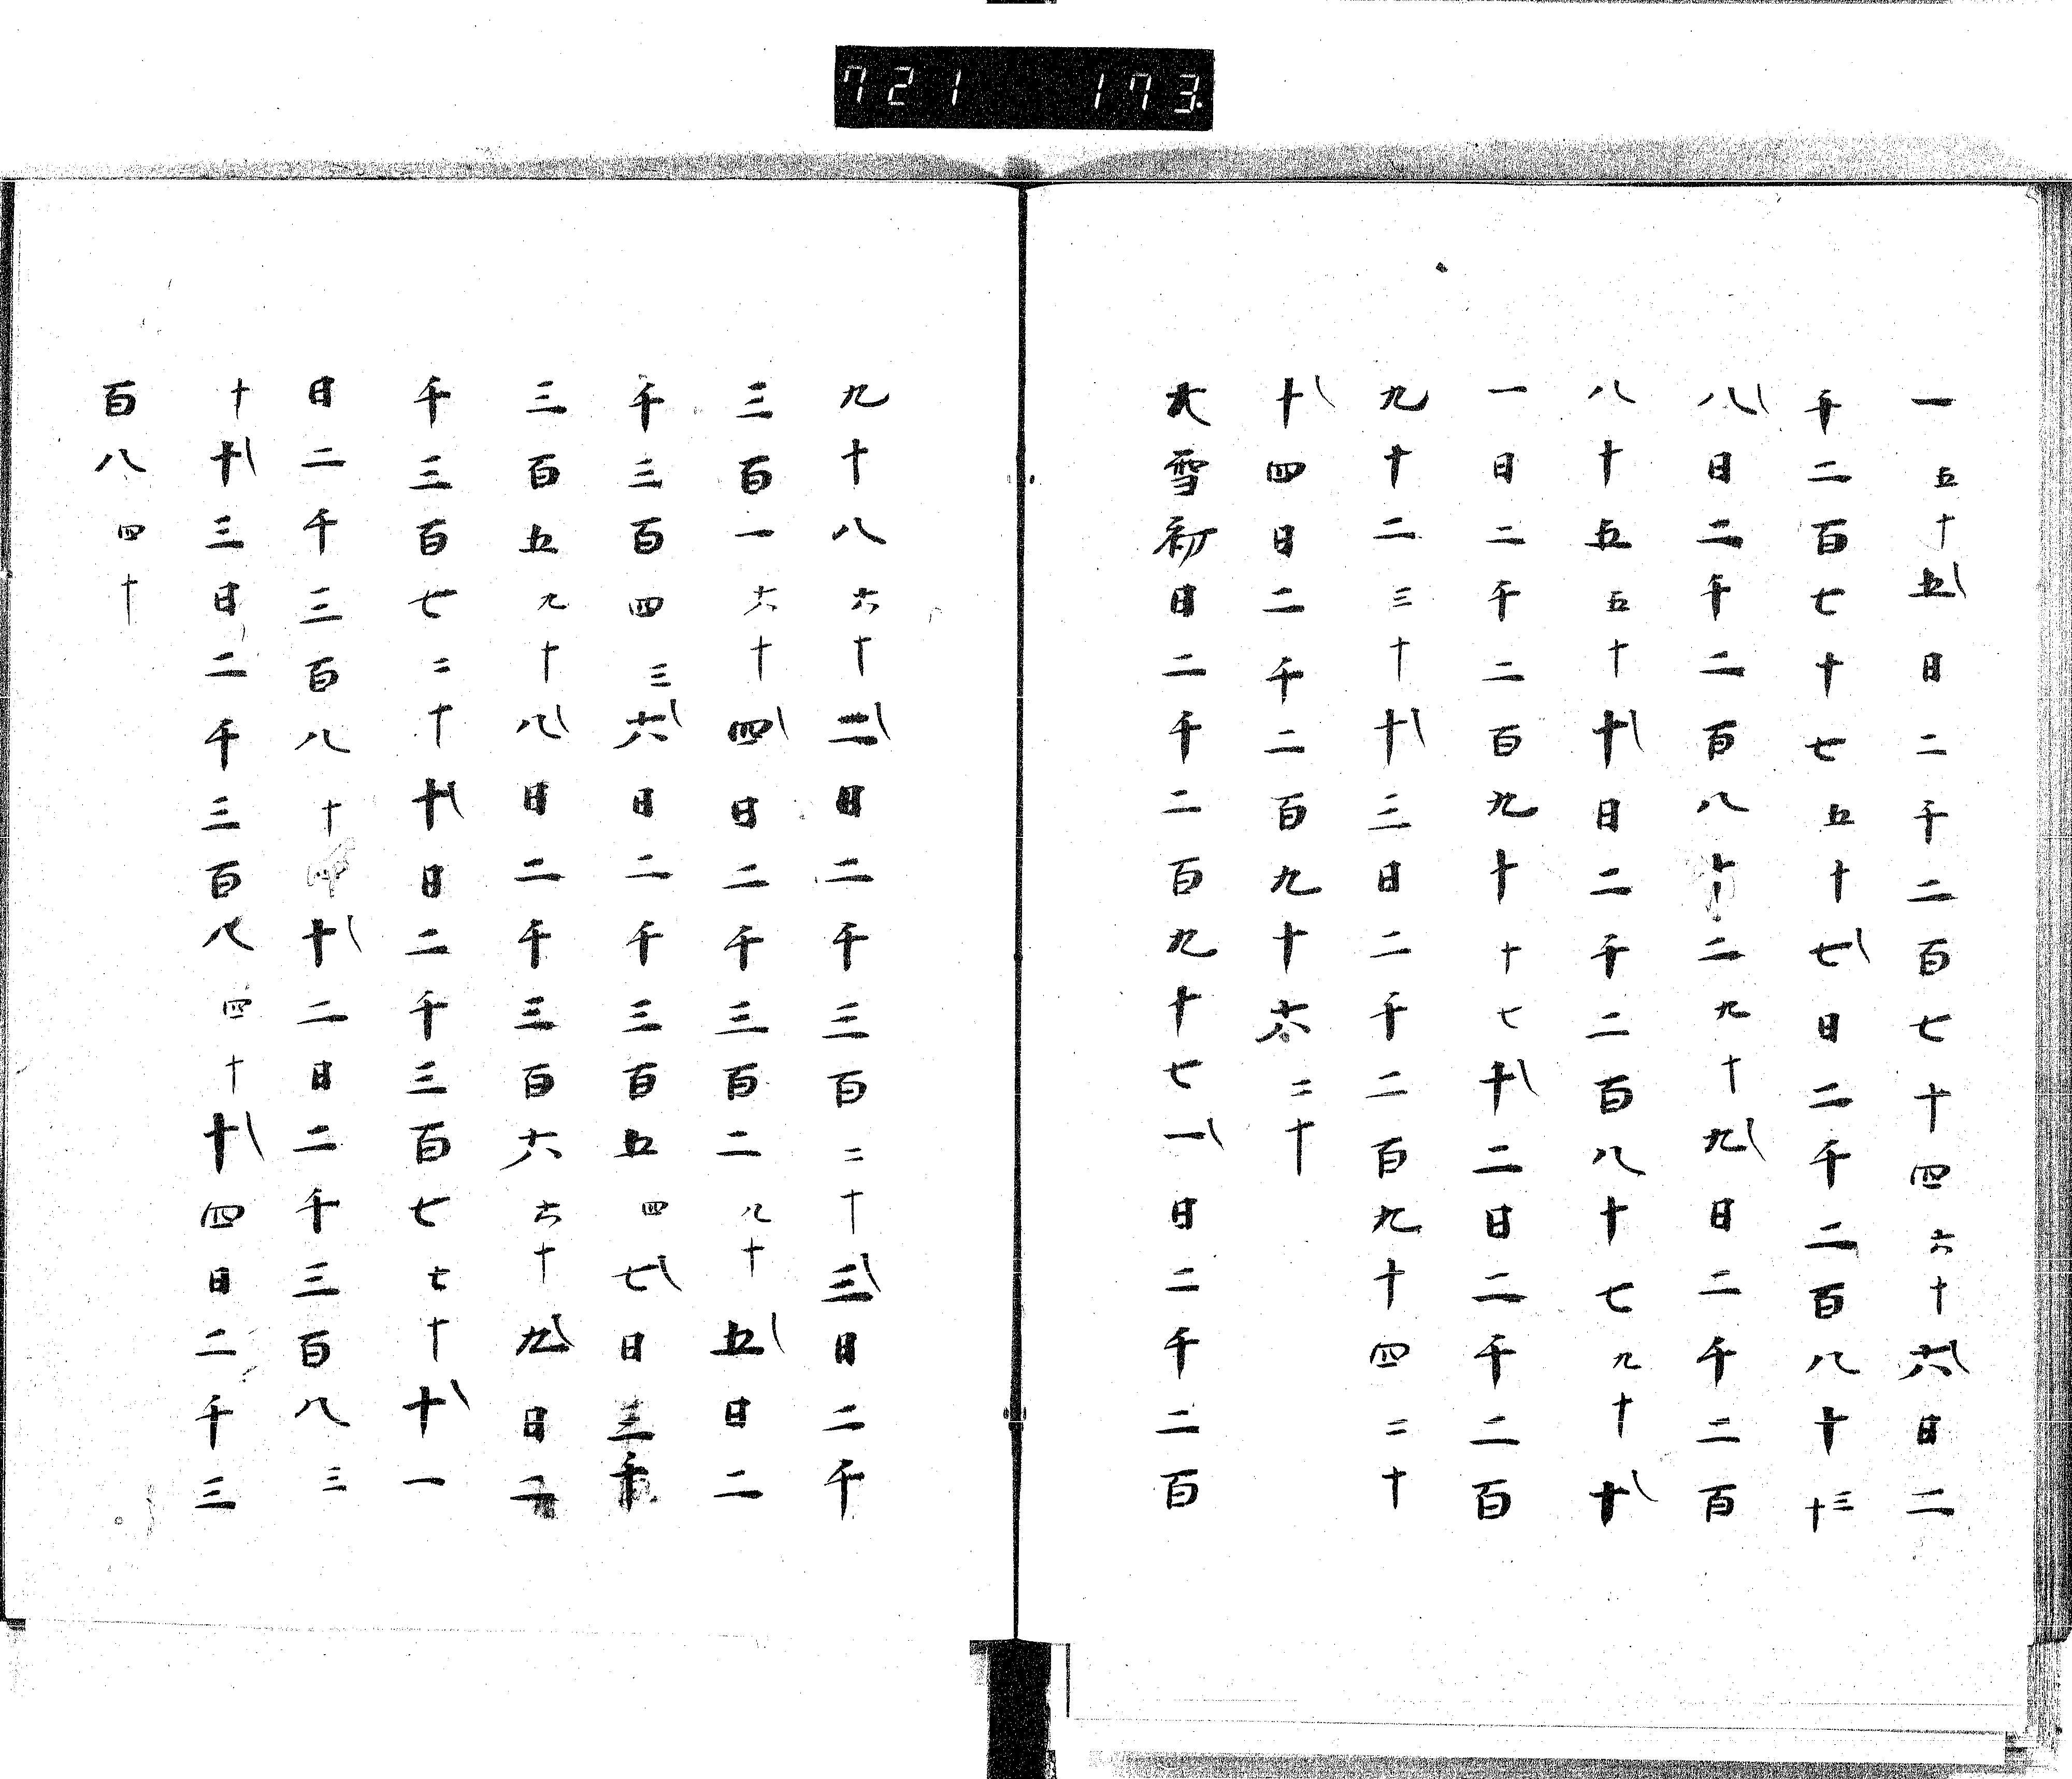 721 173
一五十五日二千二百七十四六十六日二
千二百七十七五十七日二千二百八十三十
八日二千二百八十二九十九日二千二百
八十五五十十日二千二百八十七九十十
一日二千二百九十十七十二日二千二百
九十二三十十三日二千二百九十四二十
十四日二千二百九十六二十
大雪初日二千二百九十七一日二千二百
九十八六十二日二千三百二十三日二千
三百一六十四日二千三百二八十五日二
千三百四三六日二千三百五四七日三千
三百五九十八日二千三百六六十九日二
千三百七二十十日二千三百七七十十一
日二千三百八十十二日二千三百八三
十十三日二千三百八四十十四日二千三
百八四十